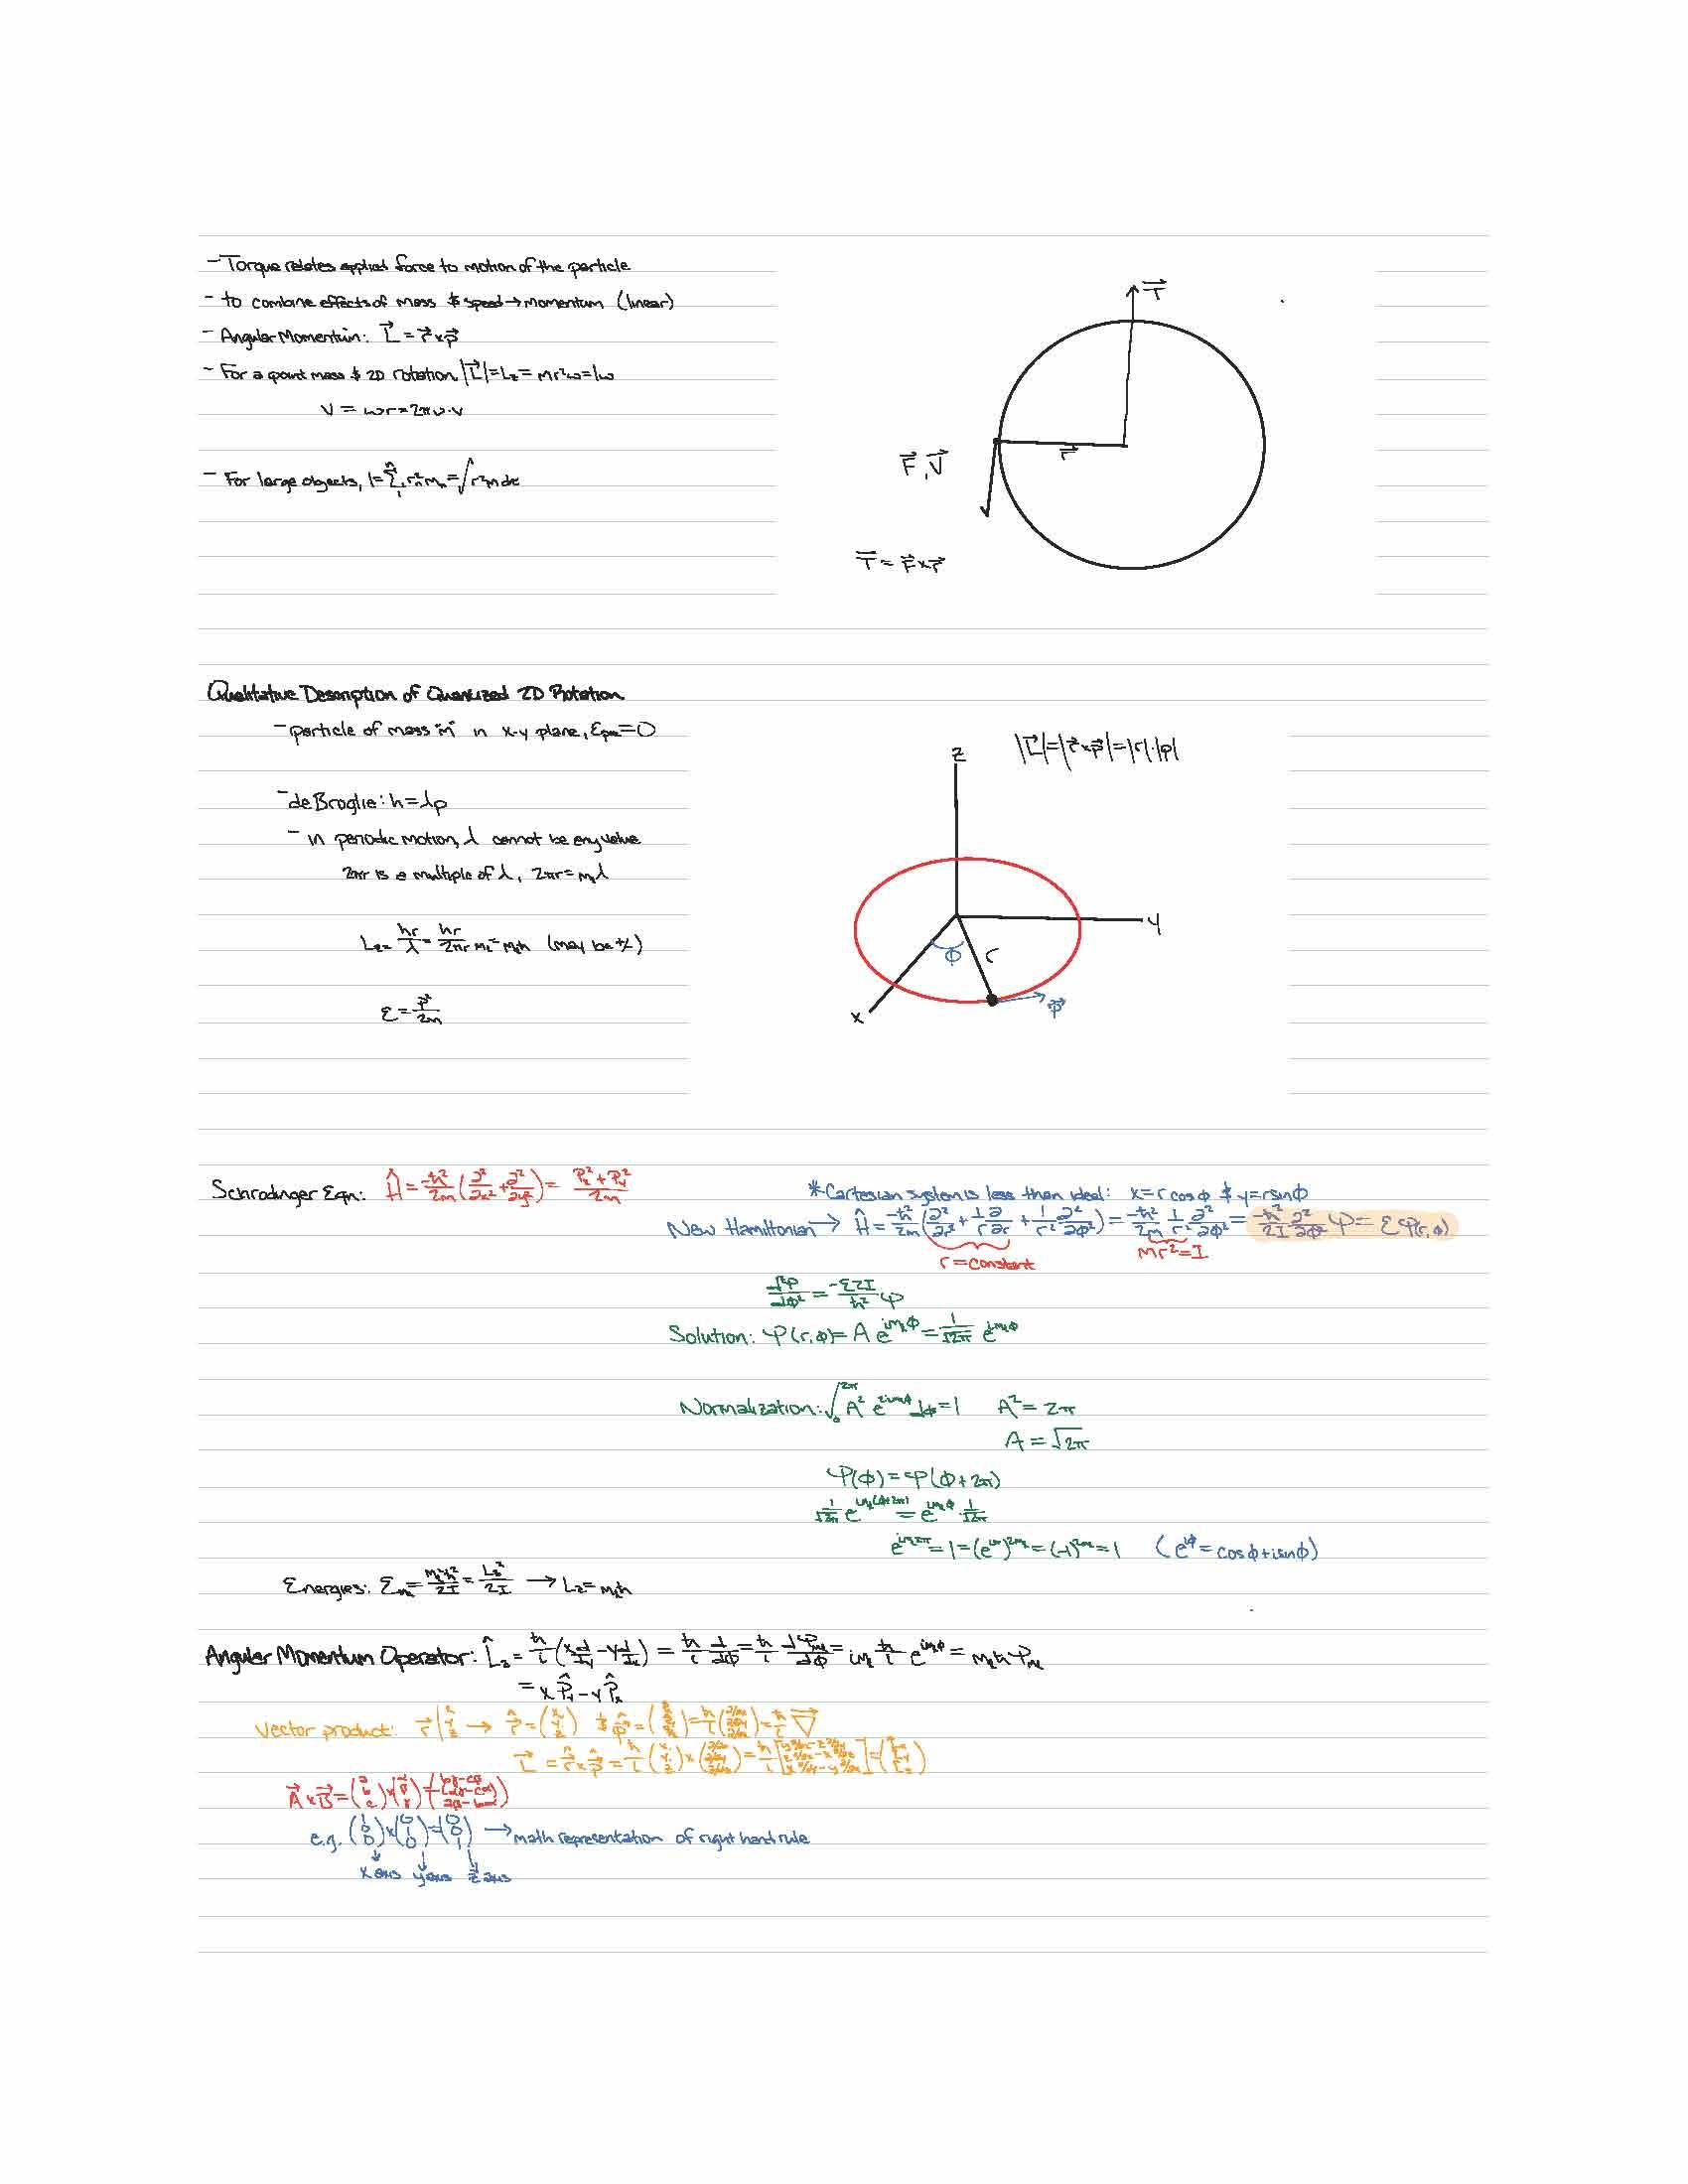 - Torque relates applied force to motion of the particle
- to combine effects of mass & speed → momentum (linear)
- Angular Momentum: L⃗ = r⃗ × p⃗
- For a point mass & 2D rotation, |L⃗| = Lz = mr²ω = Iω
V = ωr = 2πν·v
- For large objects, I = Σ rₙ² mₙ = ∫ r² m dx
T⃗
r⃗
F⃗, V⃗
T⃗ = F⃗ × r⃗
Qualitative Description of Quantized 2D Rotation
- particle of mass "m" in x-y plane, Epot = 0
- de Broglie: h = λp
- in periodic motion, λ cannot be any value
2πr is a multiple of λ, 2πr = mₗλ
Lz = hr/λ = hr/2πr mₗ = mₗħ (may be +/-)
ε = p²/2m
|L⃗| = |r⃗ × p⃗| = |r|·|p|
z
y
x
ϕ
r
p⃗
Schrodinger Eqn: Ĥ = -ħ²/2m (∂²/∂x² + ∂²/∂y²) = (Px² + Py²)/2m
* Cartesian system is less than ideal: x = r cosϕ & y = r sinϕ
New Hamiltonian → Ĥ = -ħ²/2m (∂²/∂r² + 1/r ∂/∂r + 1/r² ∂²/∂ϕ²) = -ħ²/2m 1/r² ∂²/∂ϕ² = -ħ²/2I ∂²/∂ϕ² Ψ = εΨ(r,ϕ)
r = constant
mr² = I
d²Ψ/dϕ² = -ε2I/ħ² Ψ
Solution: Ψ(r,ϕ) = A e^{imₗϕ} = 1/√2π e^{imₗϕ}
Normalization: ∫₀^{2π} A² e^{2imϕ} dϕ = 1 A² = 2π
A = √2π
Ψ(ϕ) = Ψ(ϕ + 2π)
1/√2π e^{imₗ(ϕ+2π)} = e^{imₗϕ} 1/√2π
e^{imₗ2π} = 1 = (e^{iπ})^{2mₗ} = (-1)^{2mₗ} = 1 (e^{iϕ} = cosϕ + isinϕ)
Energies: Eₘ = mₗ²ħ²/2I = Lz²/2I → Lz = mₗħ
Angular Momentum Operator: L̂z = ħ/i (x d/dy - y d/dx) = ħ/i d/dϕ = ħ/i dΨₘₗ/dϕ = imₗ ħ/i e^{imₗϕ} = mₗħΨₘₗ
= x P̂y - y P̂x
Vector product: r⃗ | x y z → r̂ = (x y z) & p̂ = (p̂x p̂y p̂z) = ħ/i (∂/∂x ∂/∂y ∂/∂z) = ħ/i ∇⃗
L⃗ = r̂ × p̂ = ħ/i (x y z) × (∂/∂x ∂/∂y ∂/∂z) = ħ/i [y ∂/∂z - z ∂/∂y z ∂/∂x - x ∂/∂z x ∂/∂y - y ∂/∂x] = (Lx Ly Lz)
A⃗ × B⃗ = (a b c) × (α β γ)
e.g. (1 0 0) × (0 1 0) = (0 0 1) → math representation of right hand rule
x axis y axis z axis